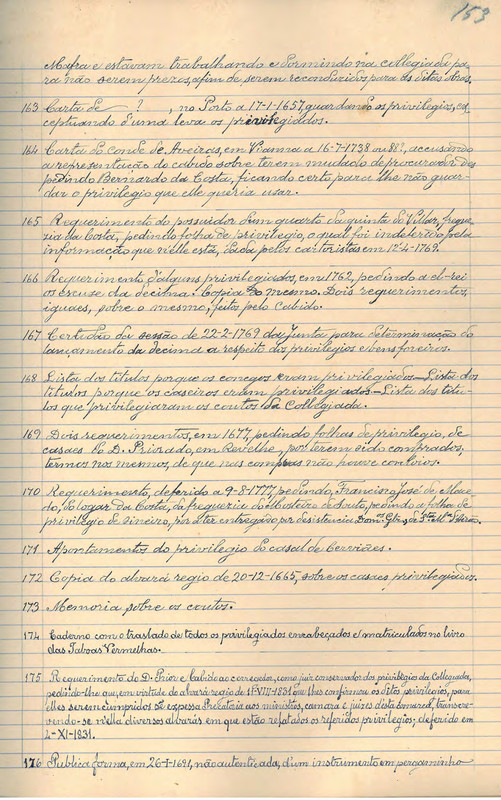 153
Mafra e estavam trabalhando e dormindo na collegiada pa-
ra não serem prezos, afim de serem reconduzidos para as ditas obras.
163 Carta de ? , no Porto a 17-1-1657, guardando os privilegios, ex-
ceptuando d'uma leva os privilegiados.
164 Carta do conde de Aveiras, em Vianna a 16-7-1738 ou 88?, accusando
a representação do cabido sobre terem mudado de procurador, des-
pedindo Bernardo da Costa, ficando certo para lhe não guar-
dar o privilegio que elle queria usar.
165 Requerimento do possuidor d'um quarto da quinta do Villar, fregue-
zia da Costa, pedindo folha de privilegio, o qual foi indeferido pela
informação que n'elle está, dada pelos cartoristas em 12-4-1769.
166 Requerimento d'alguns privilegiados, em 1762, pedindo a el-rei
os escuse da decima. Copia do mesmo. Dois requerimentos,
iguaes, sobre o mesmo, feitos pelo Cabido.
167 Certidão da sessão de 22-2-1769 da Junta para determinação do
lançamento da decima a respeito dos privilegios e bens foreiros.
168 Lista dos titulos porque os conegos eram privilegiados—Lista dos
titulos porque os caseiros eram privilegiados—Lista dos titu-
los que privilegiaram os coutos da Collegiada.
169 Dois requerimentos, em 1677, pedindo folhas de privilegio, de
casaes do D. Priorado, em Revelhe, por terem sido comprados,
termos nos mesmos, de que nas compras não houve conloios.
170 Requerimento, deferido a 9-8-1777, pedindo, Francisco José de Mace-
do, do logar da Costa, da freguezia do Mosteiro de Souto, pedindo a folha de
privilegio de dineiro, por ter entregado, por desistencia
171 Apontamentos do privilegio do casal de Cerviães.
172 Copia do alvará regio de 20-12-1665, sobre os casaes privilegiados.
173 Memoria sobre os coutos.
174 Caderno com o traslado de todos os privilegiados encabeçados e matriculados no livro
das Taboas Vermelhas.
175 Requerimento do D. Prior e Cabido ao corregedor, como juiz conservador dos privilegios da Collegiada,
pedindo-lhe que, em virtude do alvará regio de 1-VIII-1831 que lhes confirmou os ditos privilegios, para
elles serem cumpridos se expessa Precatoria aos ministros, camara e juizes desta comarca, transcre-
vendo-se n'ella diversos alvarás em que estão relatados os referidos privilegios; deferido em
4-XI-1831.
176 Publica forma, em 26-1-1691, não autenticada, d'um instrumento em pergaminho